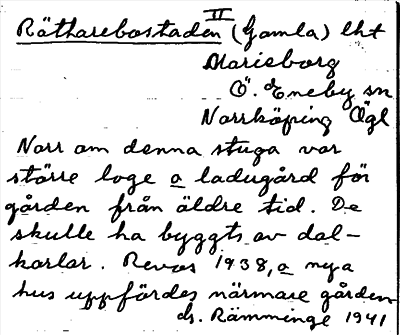 II
Rätharebostaden (Gamla) lht
Marieborg
Ö. Eneby sn
Norrköping Ögl
Norr om denna stuga var
större loge o ladugård för
gården från äldre tid. De
skulle ha byggts av dal-
karlar. Revos 1938, o nya
hus uppfördes närmare gården
ds. Rämminge 1941